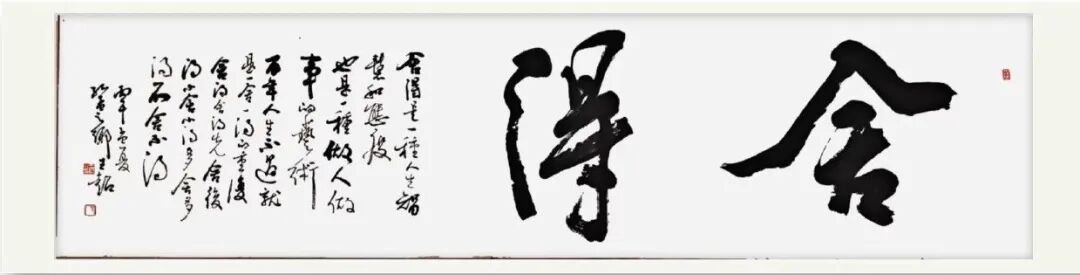 舍得
舍得是一種人生智
慧和態度
也是一種做人做
事的藝術
百年人生不過就
是一舍一得的重復
舍得舍得先舍後
得小舍小得多舍多
得不舍不得
孟夏